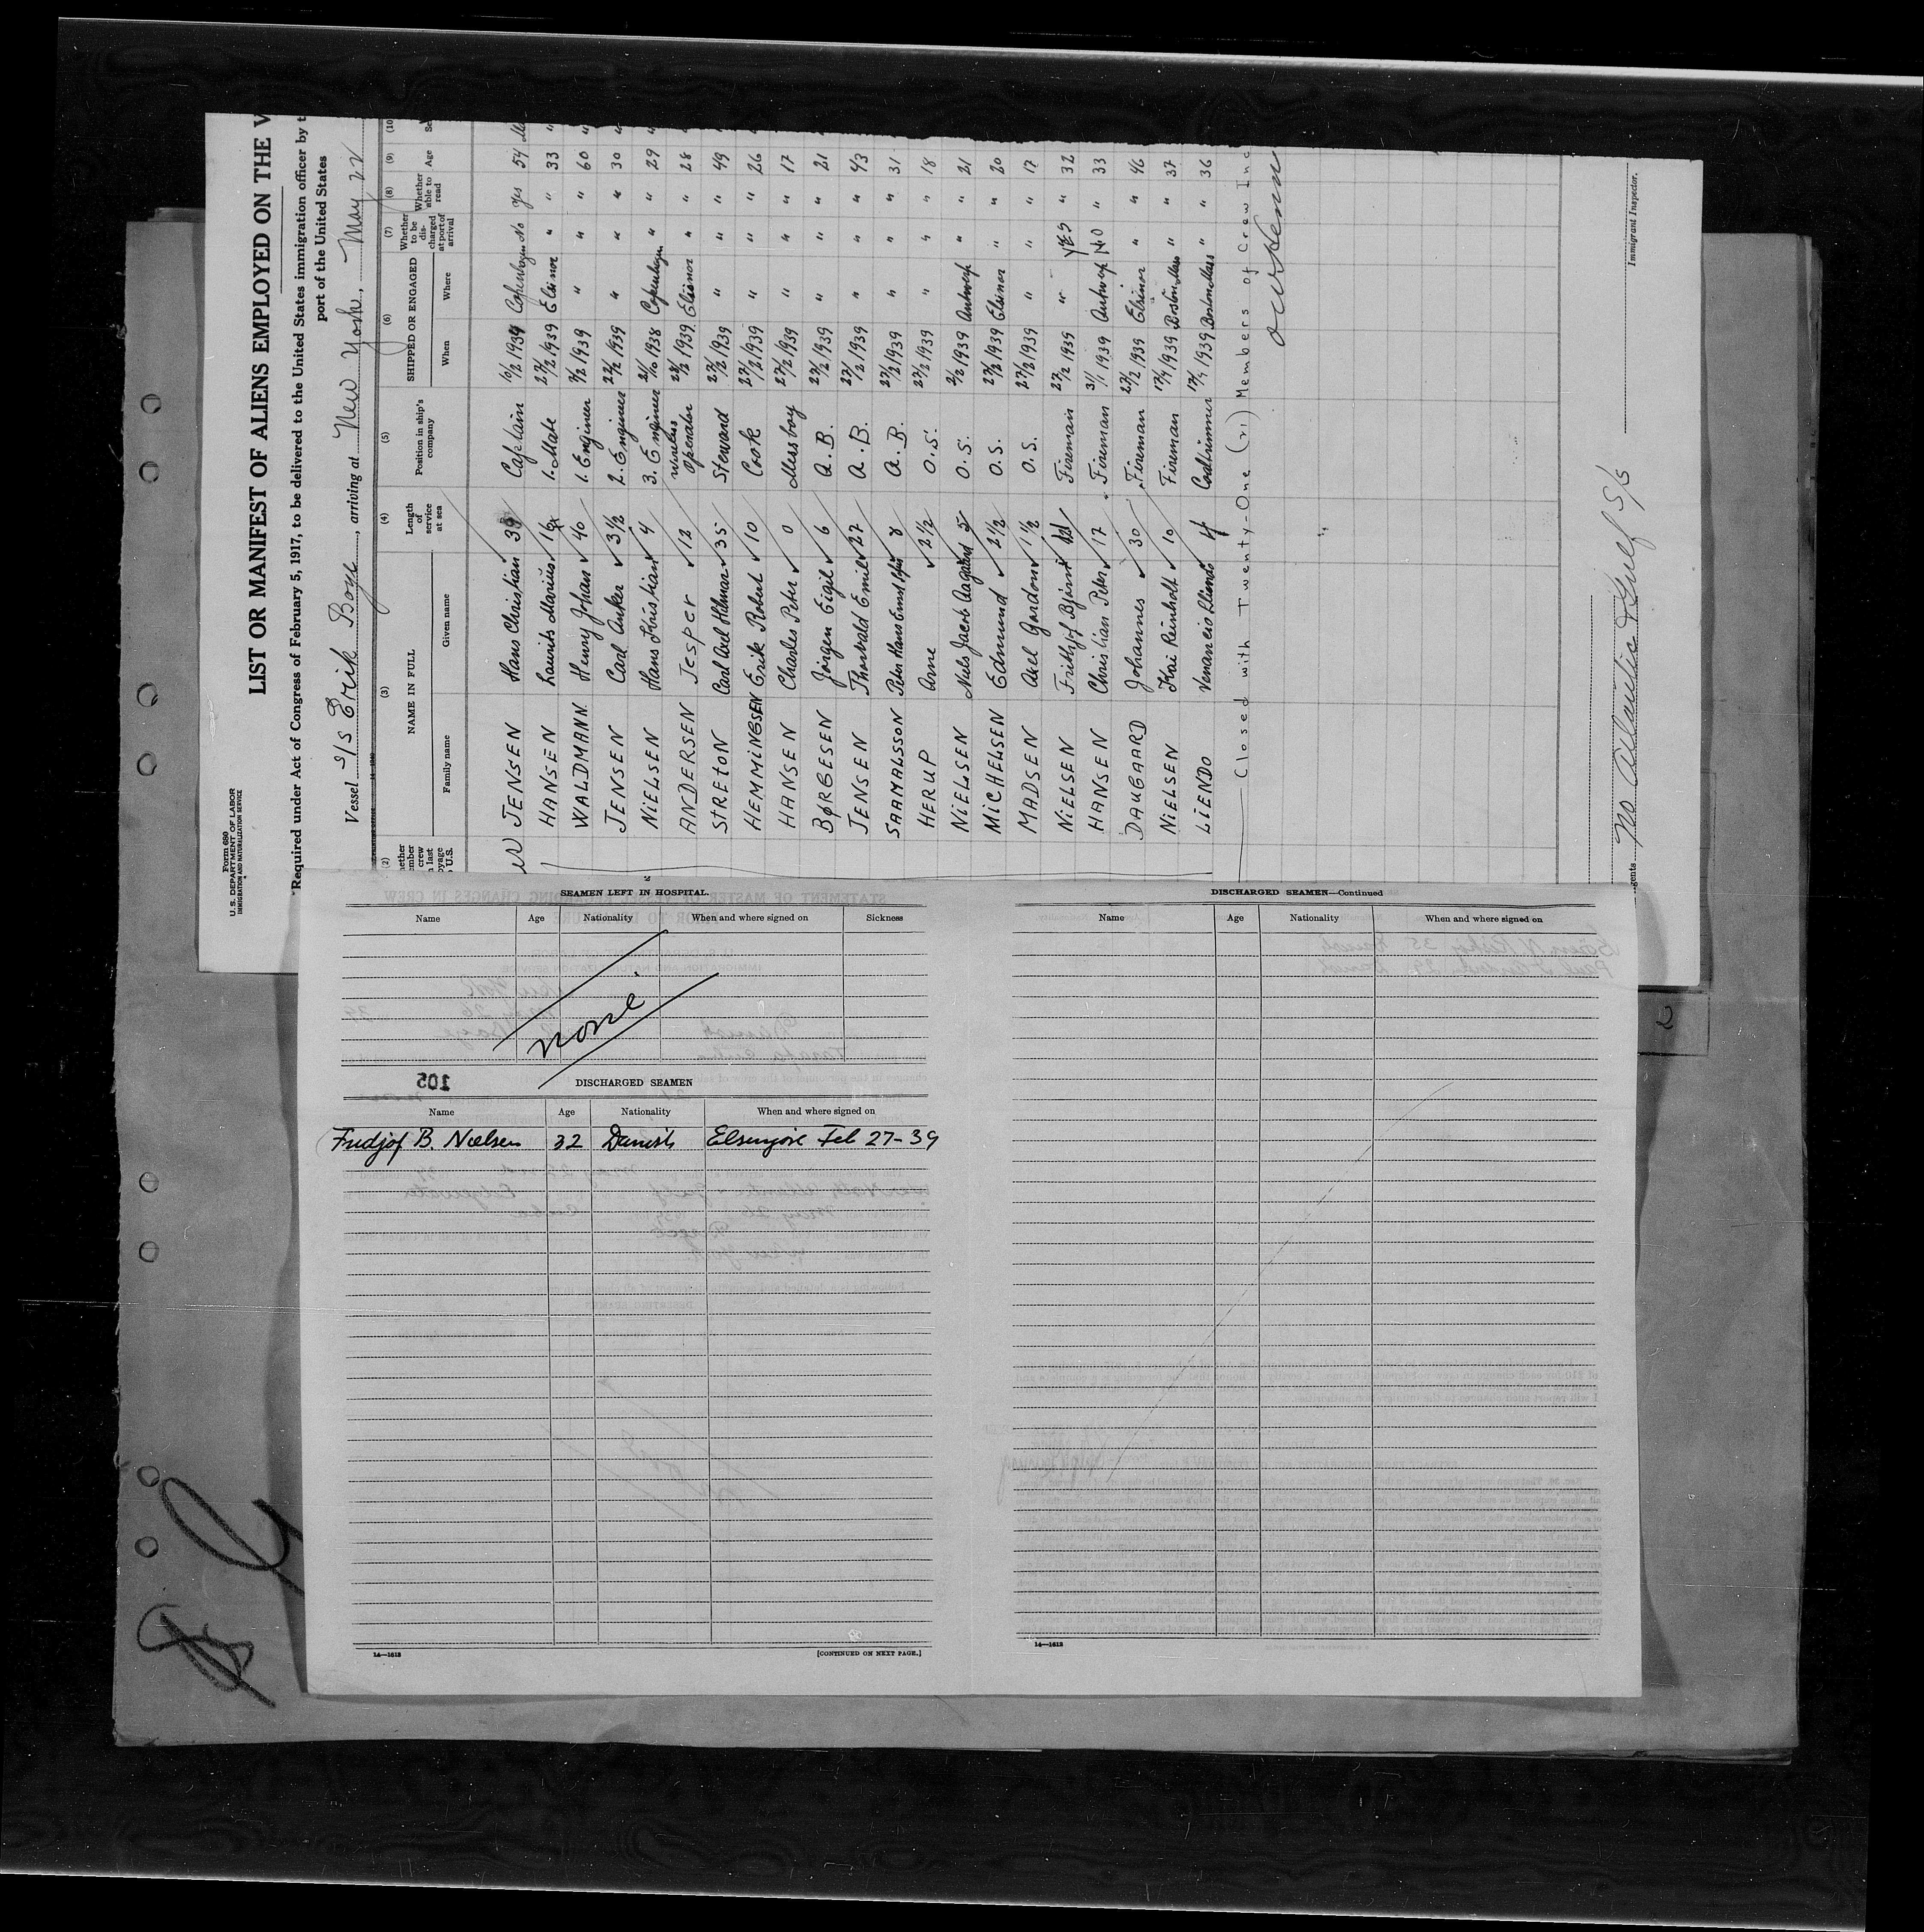 Form 680
U. S. DEPARTMENT OF LABOR
IMMIGRATION AND NATURALIZATION SERVICE
LIST OR MANIFEST OF ALIENS EMPLOYED ON THE V
Required under Act of Congress of February 5, 1917, to be delivered to the United States immigration officer by t
port of the United States
Vessel S/S Erik Boye, arriving at New York, May 22
(2) (3) (4) (5) (6) (7) (8) (9) (10
NAME IN FULL Length of service at sea Position in ship's company SHIPPED OR ENGAGED Whether to be discharged at port of arrival Whether able to read Age
Family name Given name When Where
JENSEN Hans Christian 39 Captain 10/2 1939 Copenhagen No Yes 54
HANSEN Laurits Marius 1. Mate 27/2 1939 Elsinor " " 33 "
WALDMANN Henry Johan 40 1. Engineer 1939 " " " 60 "
JENSEN Carl Anker 3 1/2 2. Engineer 22/2 1939 " " " 30 "
NiELSEN Hans Kristian 4 3. Engineer 1938 Copenhagen " " 29 "
ANDERSEN Jesper 12 wireless operator 1939 Elsinor " " 28 "
STRETON Carl Axel Hilmar 35 Steward 27/2 1939 " " " 49 "
HEMMiNGSEN Erik Robert 10 Cook 27/2 1939 " " " 26 "
HANSEN Charles Peter 0 Messboy 27/2 1939 " " " 17 "
BØRGESEN Jörgen Eigil 6 A.B. 27/2 1939 " " " 21 "
JENSEN Thorvald Emil 27 A.B. 27/2 1939 " " " 43 "
SAAMALSSON Peter Hans Ernst 8 A.B. 27/2 1939 " " " 31
HERUP Arne 2 1/2 O.S. 27/2 1939 " " " 18
NiELSEN Niels Jacob Aagaard 5 O.S. 2/2 1939 Antwerp " " 21
MiCHELSEN Edmund 2 1/2 O.S. 27/2 1939 Elsinor " " 20
MADSEN Axel Gordon 1 1/2 O.S. 27/2 1939 " " " 17
NiELSEN Fridtjof Björn Fireman 27/2 1939 " YES " 32
HANSEN Christian Peter 17 Fireman 31/1 1939 Antwerp NO " 33
DAUGAARD Johannes 30 Fireman 27/2 1939 Elsinor " " 46
NiELSEN Kai Reinholt 10 Fireman 17/4 1939 Boston Mass " " 37
LiENDO Venancio Coaltrimmer 17/4 1939 Boston Mass " " 36
Closed with Twenty-One (21) Members of Crew Inc
Immigrant Inspector.
gents No Atlantic & Gulf S/S
SEAMEN LEFT IN HOSPITAL.
Name Age Nationality When and where signed on Sickness
none
105
DISCHARGED SEAMEN
Name Age Nationality When and where signed on
Fridjof B. Nielsen 32 Danish Elsenjore Feb 27-39
14—1613
[CONTINUED ON NEXT PAGE.]
DISCHARGED SEAMEN—Continued
Name Age Nationality When and where signed on
14—1613
2